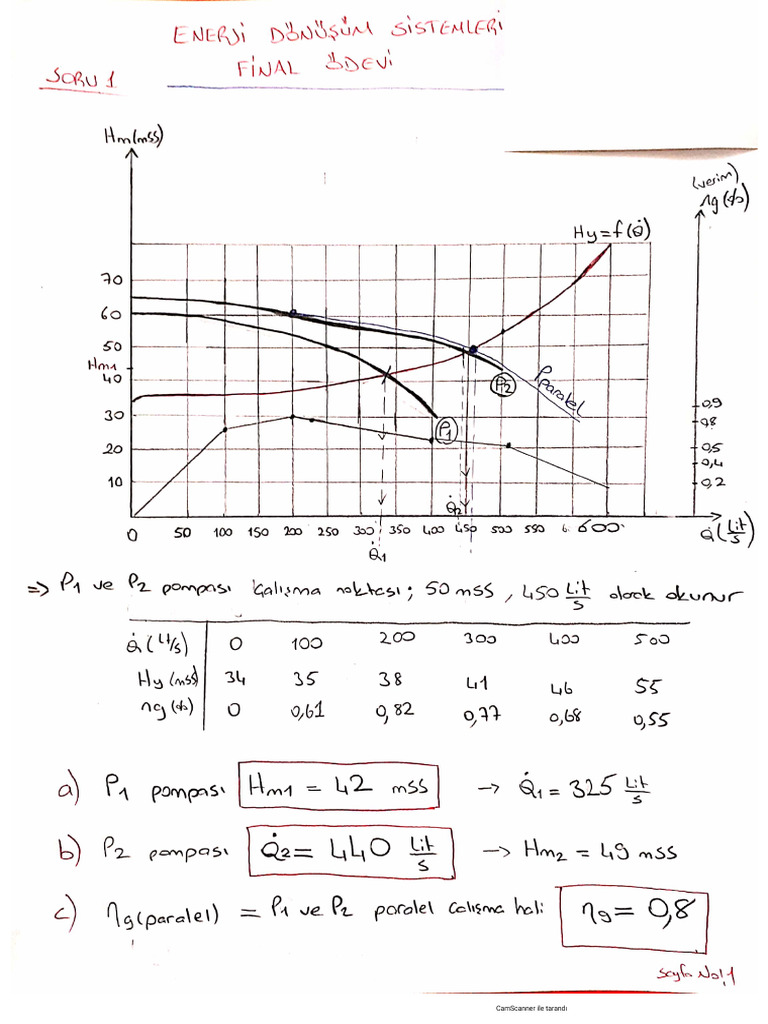 ENERJİ DÖNÜŞÜM SİSTEMLERİ
FİNAL ÖDEVİ
SORU 1
Hm(mss)
(verim)
ηg(%)
Hy=f(Q̇)
70
60
50
Hm1
40
30
20
10
P2
Pparalel
P1
0,9
0,8
0,5
0,4
0,2
Q̇2
0 50 100 150 200 250 300 350 400 450 500 550 6. 600
Q̇(Lit/s)
Q̇1
=> P1 ve P2 pompası Çalışma noktası; 50 mss, 450 Lit/s olarak okunur
Q̇(Lt/s) 0 100 200 300 400 500
Hy(mss) 34 35 38 41 46 55
ηg(%) 0 0,61 0,82 0,77 0,68 0,55
a) P1 pompası Hm1 = 42 mss → Q̇1 = 325 Lit/s
b) P2 pompası Q̇2 = 440 Lit/s → Hm2 = 49 mss
c) ηg(paralel) = P1 ve P2 paralel çalışma hali ηg = 0,8
Sayfa No:1
CamScanner ile tarandı